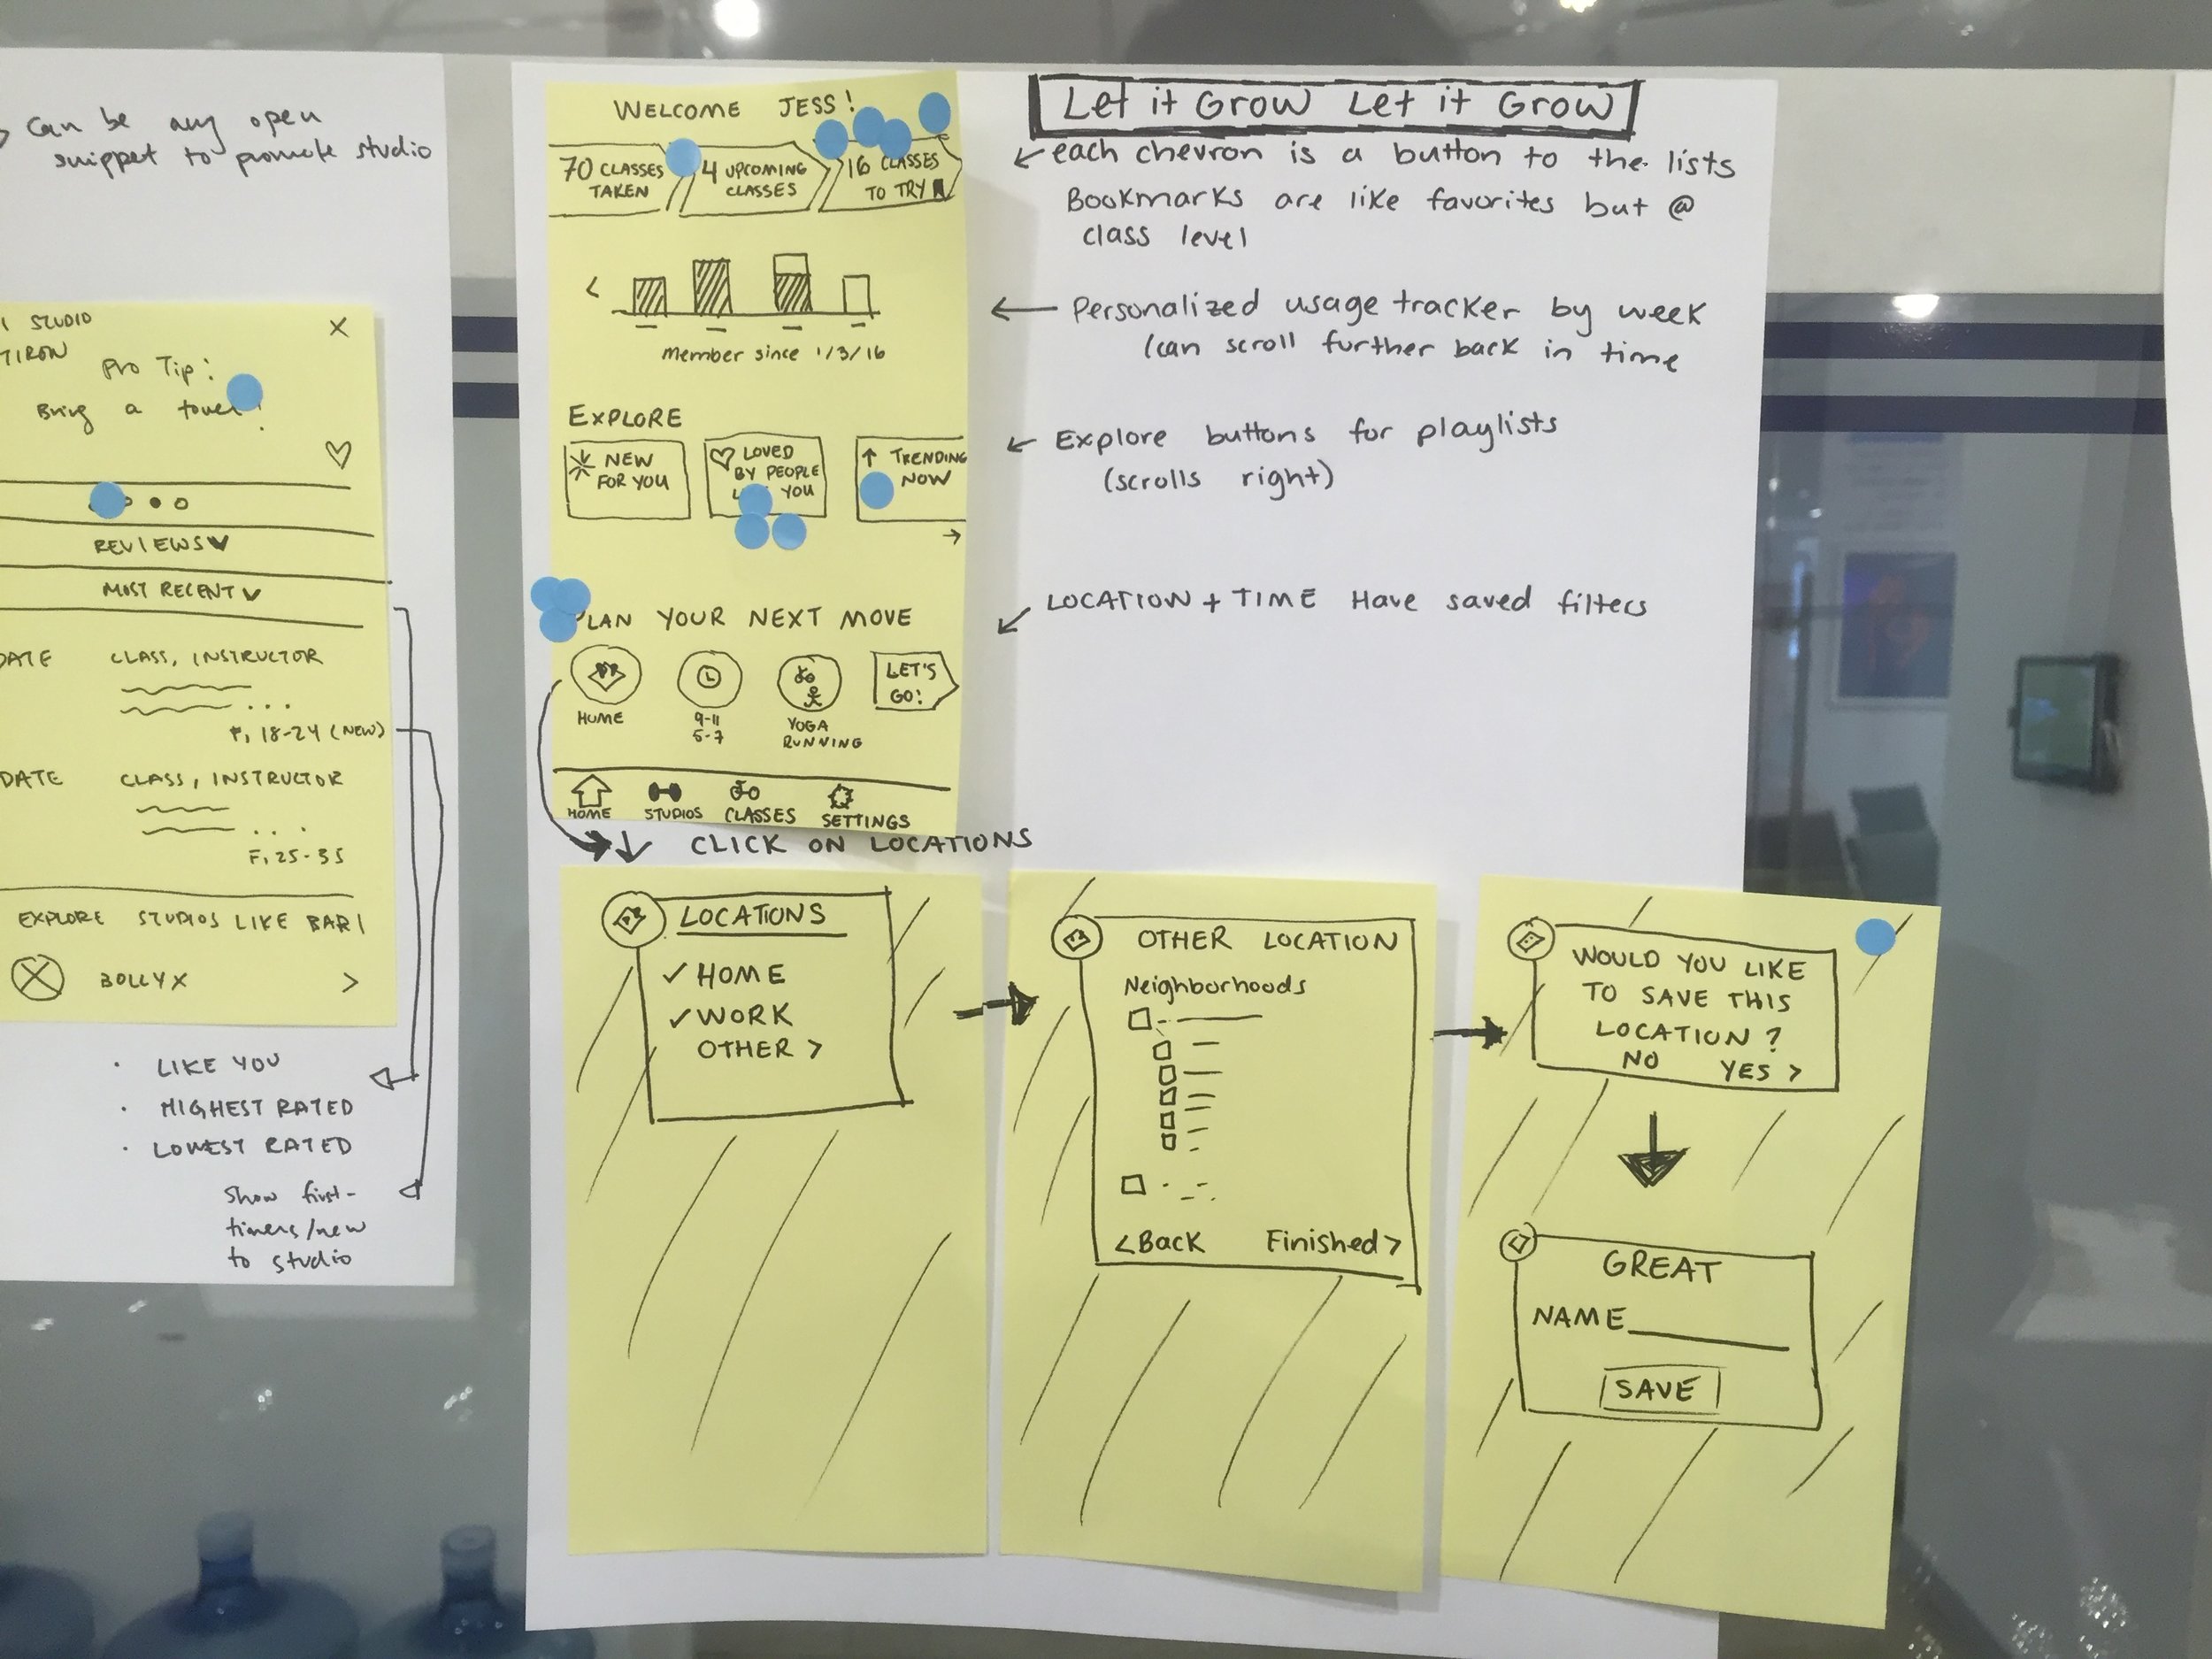 Can be any open
snippet to promote studio
STUDIO
TIRON
Pro Tip:
Bring a towel!
REVIEWS
MOST RECENT
DATE CLASS, INSTRUCTOR
F, 18-24 (NEW)
DATE CLASS, INSTRUCTOR
F, 25-35
EXPLORE STUDIOS LIKE BARI
BOLLYX >
· LIKE YOU
· HIGHEST RATED
· LOWEST RATED
Show first-
timers/new
to studio
WELCOME JESS!
70 CLASSES
TAKEN
4 UPCOMING
CLASSES
16 CLASSES
TO TRY
<
Member since 1/3/16
EXPLORE
NEW
FOR YOU
LOVED
BY PEOPLE
YOU
TRENDING
NOW
PLAN YOUR NEXT MOVE
HOME
9-11
5-7
YOGA
RUNNING
LET'S
GO!
HOME STUDIOS CLASSES SETTINGS
Let it Grow Let it Grow
each chevron is a button to the lists
Bookmarks are like favorites but @
class level
Personalized usage tracker by week
(can scroll further back in time
Explore buttons for playlists
(scrolls right)
LOCATION + TIME Have saved filters
CLICK ON LOCATIONS
LOCATIONS
✓ HOME
✓ WORK
OTHER >
OTHER LOCATION
Neighborhoods
<Back Finished>
WOULD YOU LIKE
TO SAVE THIS
LOCATION?
NO YES >
GREAT
NAME
SAVE